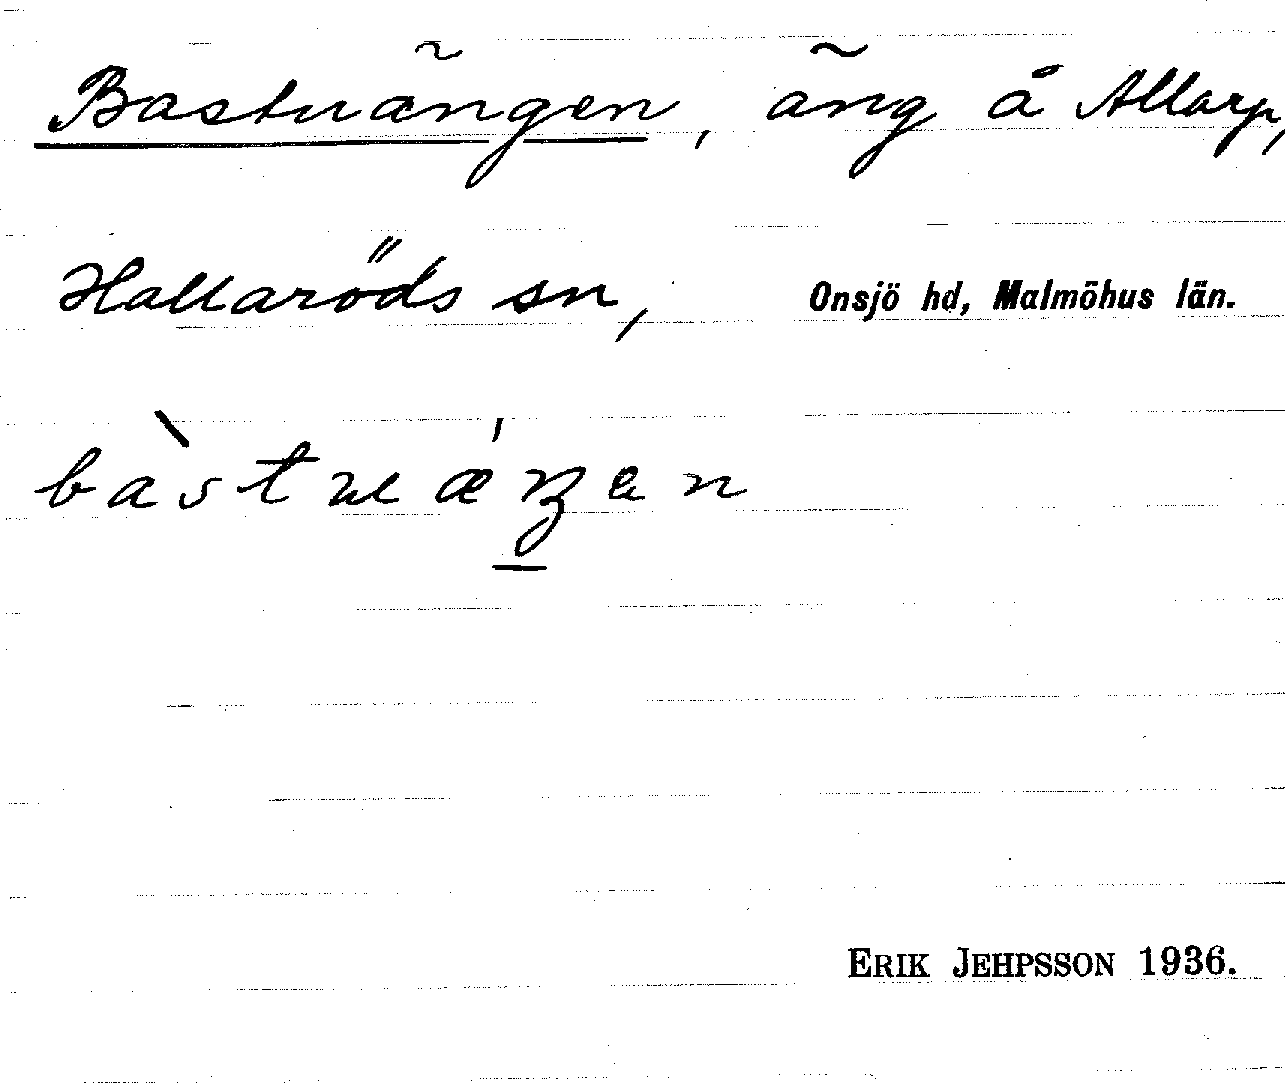 Bastuängen, äng å Allarp,
Hallaröds sn, Onsjö hd, Malmöhus län.
ERIK JEHPSSON 1936.